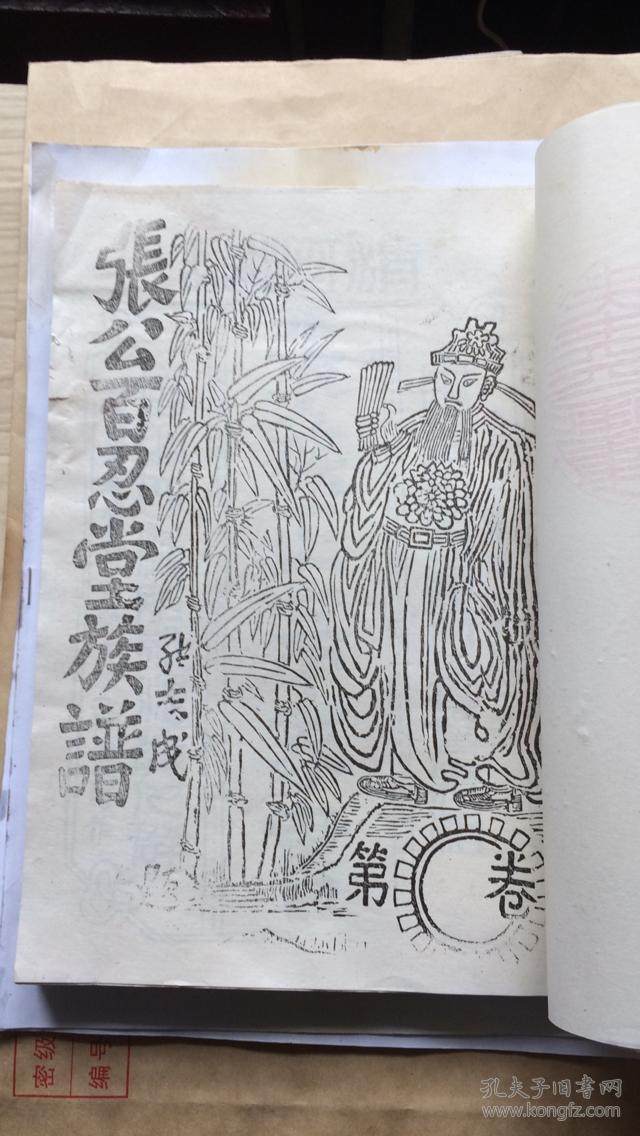 張公百忍堂族譜
張志成
第 卷
密级
编号
孔夫子旧书网
www.kongfz.com